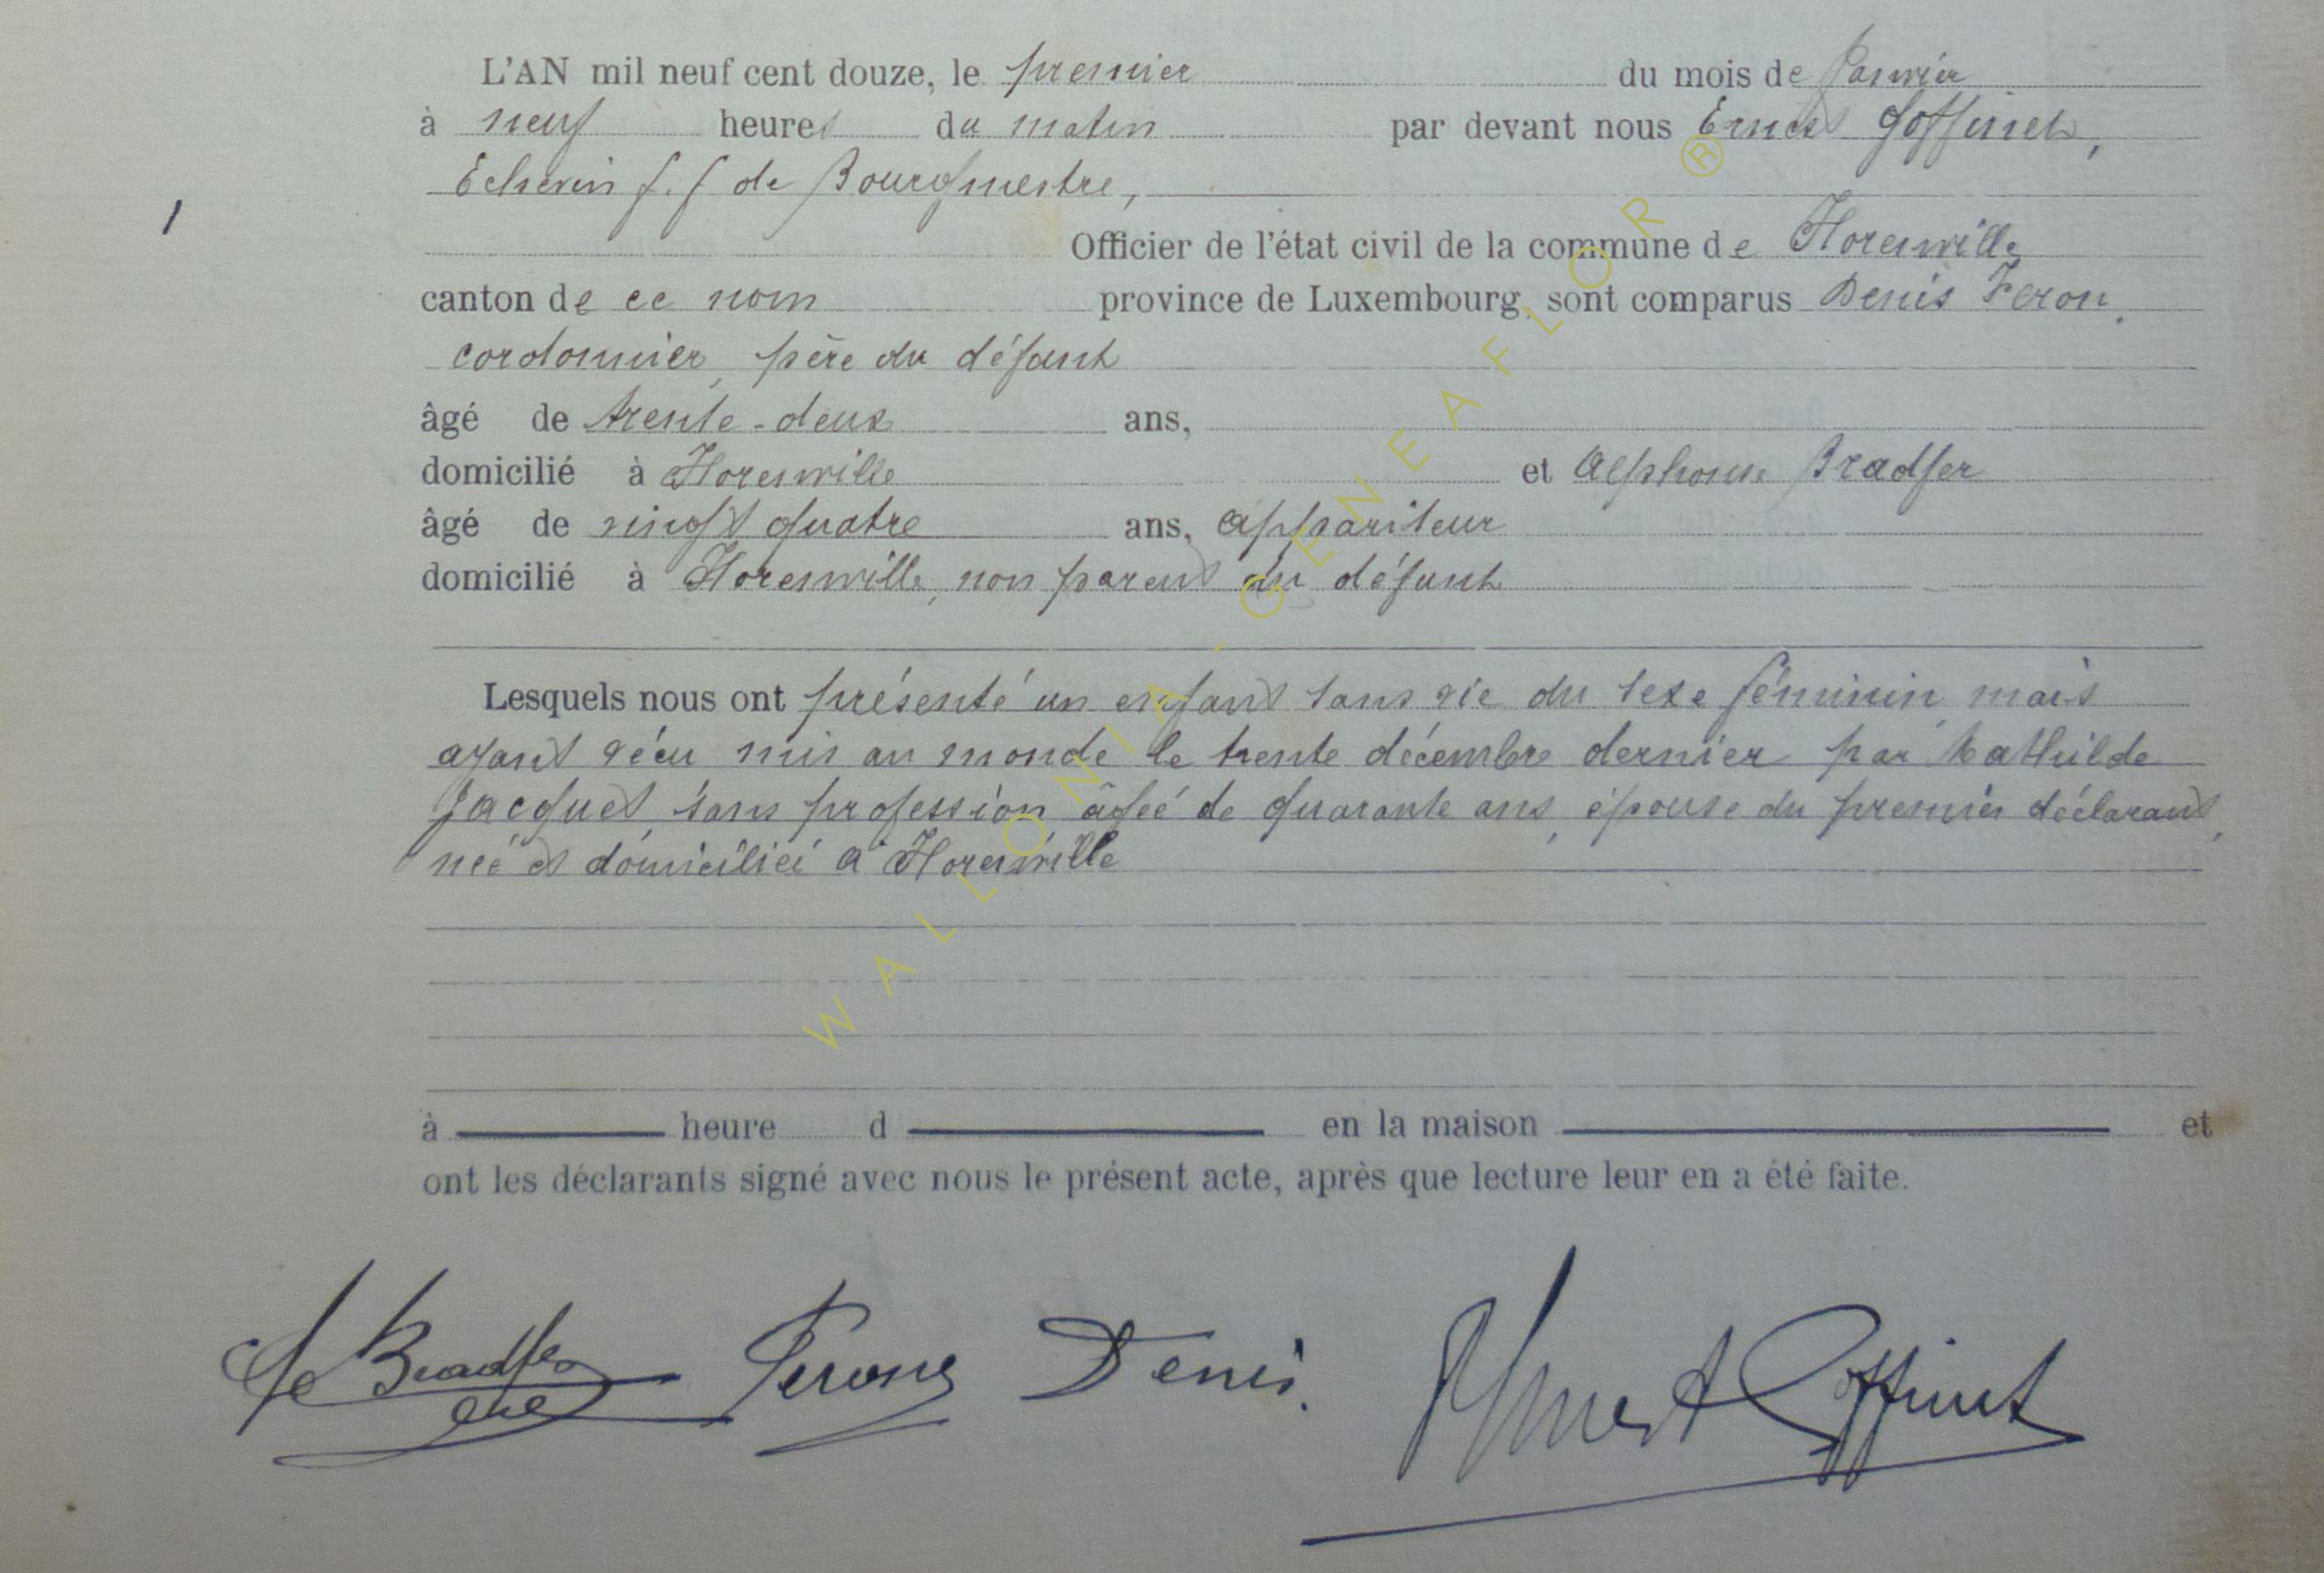 L'AN mil neuf cent douze, le premier du mois de Janvier
à neuf heures du matin par devant nous Ernest Goffinet,
Echevin f. f. de Bourgmestre,
1
Officier de l'état civil de la commune de Florenville
canton de ce nom province de Luxembourg, sont comparus Denis Feron,
cordonnier, père du défunt
âgé de trente-deux ans,
domicilié à Florenville et Alphonse Bradfer
âgé de vingt quatre ans, appariteur
domicilié à Florenville, non parent du défunt
Lesquels nous ont présenté un enfant sans vie du sexe féminin, mais
ayant vécu mis au monde le trente décembre dernier par Mathilde
Jacquet, sans profession âgée de quarante ans, épouse du premier déclarant,
née et domiciliée à Florenville
à heure d en la maison et
ont les déclarants signé avec nous le présent acte, après que lecture leur en a été faite.
Bradfer Feron Denis. Ernest Goffinet
WALLONIA - GENEAFLOR ®